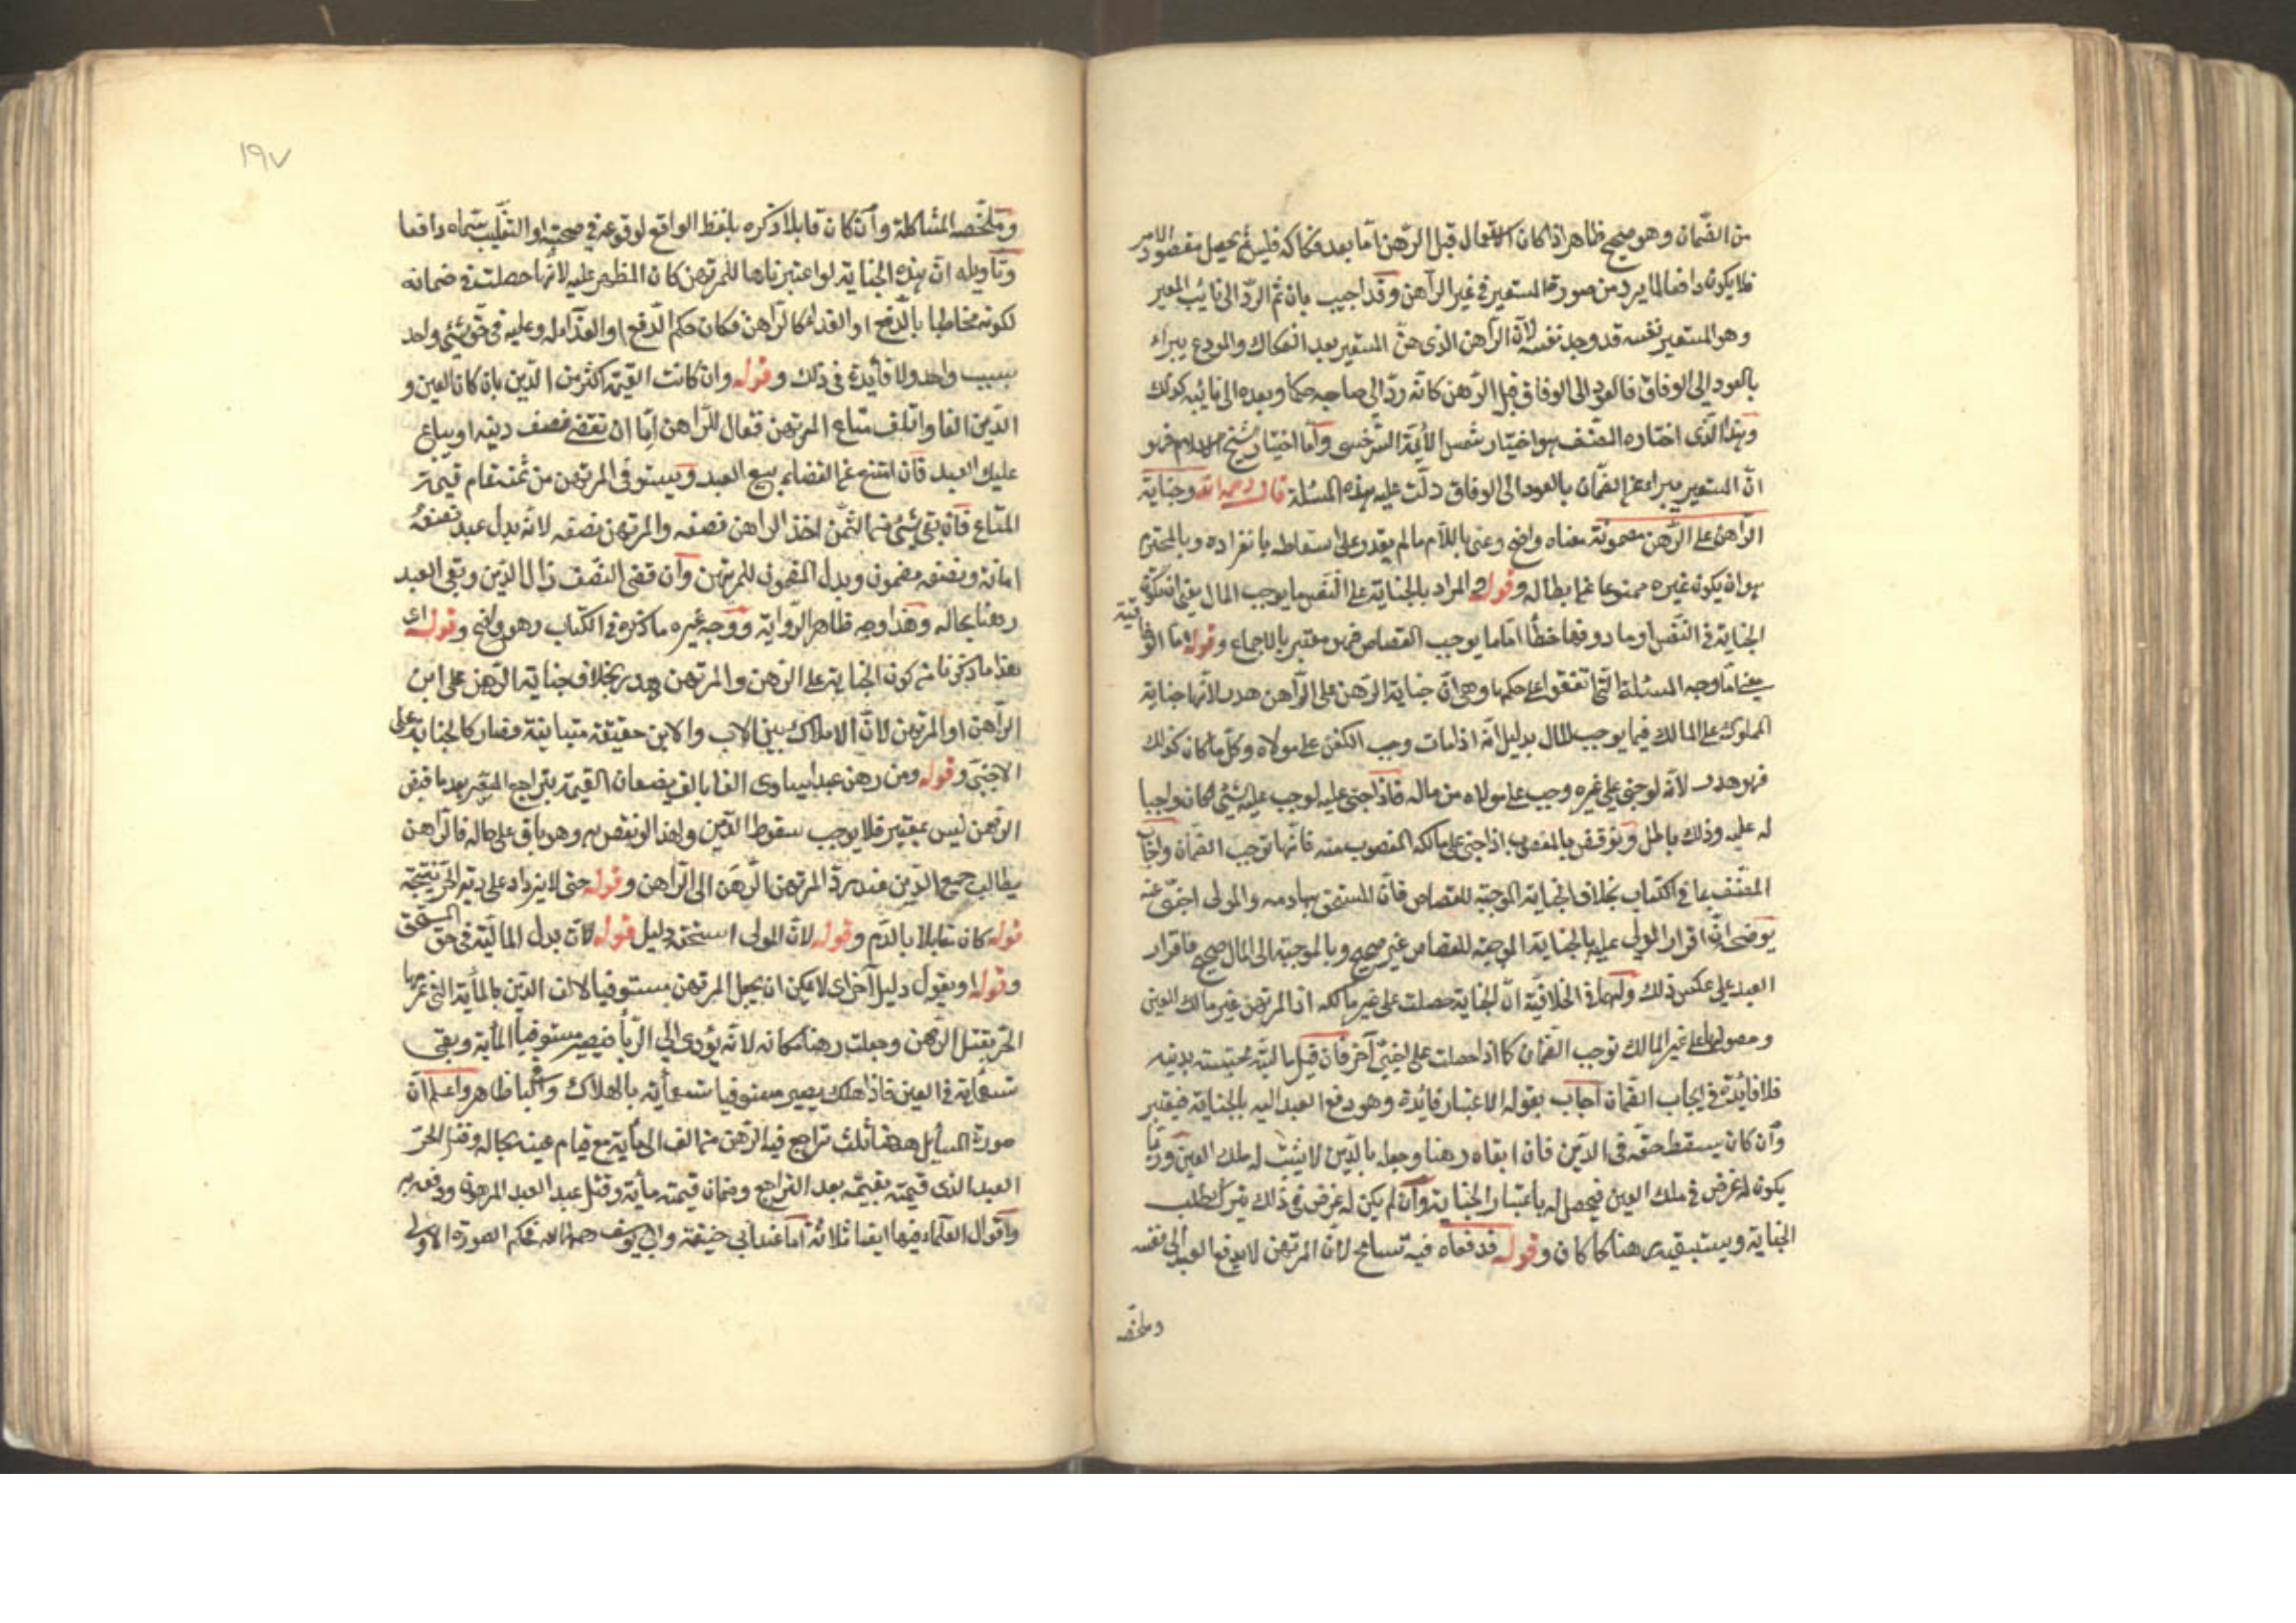 من الضمان وهو صحيح ظاهر اذا كان الاستعمال قبل الرهن اما بعد فكاكه فليس يحصل مقصود الامر
فلا يكون دافعا لما يرد من صورة المستعير في غير الراهن وقد اجيب بان ثم الرد الى نائب المعير
وهو المستعير نفسه قد وجد نفسه لان الراهن الذي هن المستعير بعد الفكاك والمودع يبراء
بالعود الى الوفاق فالعود الى الوفاق قبل الرهن كانه رد الى صاحبه حكما وبعده الى نائبه كذلك
وهذا الذي اختاره المصنف هو اختيار شمس الأيمة السرخسي وأما اختيار شيخ الاسلام فهو
ان المستعير يبراء عن الضمان بالعود الى الوفاق دلت عليه هذه المسئلة قال رحمه الله وجناية
الراهن على الرهن مضمونة معناه واضح وعنى باللازم ما لم يقدر على اسقاطه بانفراده وبالمحترم
هو ان يكون غيره ممنوعا عن ابطاله وقوله والمراد بالجناية على النفس ما يوجب المال يعني ان تكون
الجناية في النفس او ما دونها خطأ اما ما يوجب القصاص فهو معتبر بالاجماع وقوله اما الوفاقية
يعني اما وجه المسئلة التي اتفقوا على حكمها وهي ان جناية الرهن على الراهن هدر لانها جناية
المملوك على المالك فيما يوجب المال بدليل انه اذا مات وجب الكفن على مولاه وكل ما كان كذلك
فهو هدر لأنه لو جنى على غيره وجب على مولاه من ماله فاذا جنى عليه لوجب عليه شئ لكان واجبا
له عليه وذلك باطل ونوقض بالمغصوب اذا جنى على مالكه المغصوب منه فانها توجب الضمان واجاب
المصنف بما في الكتاب بخلاف الجناية الموجبة للقصاص فان المستحق بها دمه والمولى اجنبي عنه
يوضحه ان اقرار المولى عليه بالجناية الموجبة للقصاص غير صحيح وبالموجبة الى المال صحيح فاقرار
العبد على عكس ذلك ولهما في الخلافية ان الجناية حصلت على غير مالكه اذ المرتهن غير مالك للعين
وحصولها على غير المالك توجب الضمان كما اذا حصلت على اجنبي آخر فان قيل ماليته محتبسة بدينه
فلا فائدة في ايجاب الضمان اجاب بقوله الاعتبار فائدة وهو دفع العبد اليه بالجناية فيعتبر
وان كان يسقط حقه في الدين فان ابقاه رهنا وجعله بالدين لا يثبت له ملك العين وربما
يكون له غرض في ملك العين فيحصل له باعتبار الجناية وان لم يكن له غرض في ذلك يترك طلب
الجناية ويستبقيه رهنا كما كان وقوله فدفعاه فيه تسامح لان المرتهن لا يدفع العبد الى نفسه
وملخصه
١٩٧
وملخصه المشاكلة وان كان قابلا ذكره بلفظ الواقع لوقوعه في صحبته او التغليب سماه دافعا
وتأويله ان هذه الجناية لو اعتبرناها للمرتهن كان التطهير عليه لانها حصلت في ضمانه
لكونه مخاطبا بالدفع او الفداء كالراهن فكان حكم الدفع او الفداء له وعليه في حق شئ واحد
بسبب واحد ولا فائدة في ذلك وقوله وان كانت القيمة اكثر من الدين بان كان العين و
الدين الفا واتلف متاع المرتهن فقال للراهن إما ان تقضي نصف دينه او يباع
عليك العبد فان امتنع عن القضاء بيع العبد ويستوفى المرتهن من ثمنه تمام قيمة
المتاع فان بقي شئ من الثمن اخذ الراهن نصفه والمرتهن نصفه لانه بدل عبد نصفه
امانة ونصفه مضمون وبدل المضمون للمرتهن وان قضى النصف زال الدين وبقي العبد
رهنا بحاله وهذا وجه ظاهر الرواية ووجه غيره ما ذكره في الكتاب وهو واضح وقوله اى
هذا ما ذكرنا من كون الجناية على الراهن والمرتهن هدر بخلاف جناية الرهن على ابن
الراهن او المرتهن لان الاملاك بين الاب والابن حقيقة متباينة فصار كالجناية على
الاجنبي وقوله ومن رهن عبدا يساوى الفا بالف نقصان القيمة بتراجع السعر بعد ما قبض
الرهن ليس بمعتبر فلا يوجب سقوط الدين ولهذا لو نقص به وهو باق على حاله فالراهن
يطالب جميع الدين عند رد المرتهن الرهن الى الراهن وقوله حتى لا يزداد على دية الحر نتيجة
قوله كان مقابلا بالدم وقوله لان المولى استحقه دليل قوله لان بدل المالية في حق المستحق
وقوله او يقول دليل آخر اى لا يمكن ان يجعل المرتهن مستوفيا لان الدين بالمأية التي غرمها
الحر بقتل الرهن وجعلت رهنا مكانه لانه يؤدى الى الربا فيصير مستوفيا المأية وبقي
تسعمأية في العين فاذا هلك يصير مستوفيا تسعمأية بالهلاك والباقي ظاهر واعلم ان
صورة المسايل ههنا ثلث تراجع فيه الرهن من الف الى مأية مع قيام عينه بحاله وقتل الحر
العبد الذي قيمته بقيمته بعد التراجع وضمان قيمته مأية وقتل عبد العبد المرهون ودفعه به
واقوال العلماء فيها ايضا ثلاثة اما عند ابي حنيفة وابي يوسف رحمهما الله فحكم الصورة الاولى